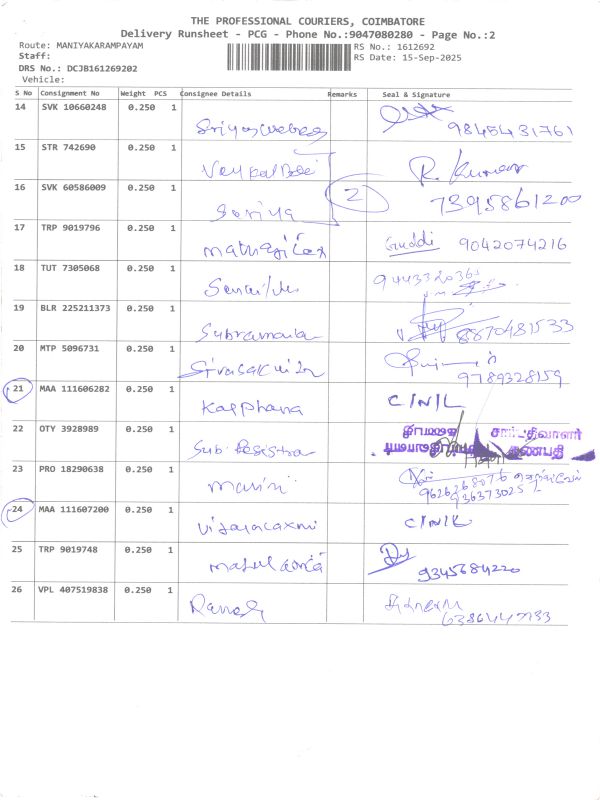 THE PROFESSIONAL COURIERS, COIMBATORE
Delivery Runsheet - PCG - Phone No.:9047080280 - Page No.:2
Route: MANIYAKARAMPAYAM RS No.: 1612692
Staff: RS Date: 15-Sep-2025
DRS No.: DCJB161269202
Vehicle:
S No Consignment No Weight PCS Consignee Details Remarks Seal & Signature
14 SVK 10660248 0.250 1 9845431761
15 STR 742690 0.250 1 R. Kumar
16 SVK 60586009 0.250 1 Soriya 2 7395861200
17 TRP 9019796 0.250 1 Guddi 9042074216
18 TUT 7305068 0.250 1 9443320365
19 BLR 225211373 0.250 1 Subramania 8870481533
20 MTP 5096731 0.250 1 9789328159
21 MAA 111606282 0.250 1 Kalphana C/N/L
22 OTY 3928989 0.250 1 Sub. Resistra சார்பதிவாளர்
கணபதி
23 PRO 18290638 0.250 1 9626268076
24 MAA 111607200 0.250 1 Vijayalaxmi C/N/L
25 TRP 9019748 0.250 1 9345684220
26 VPL 407519838 0.250 1 Ramesh